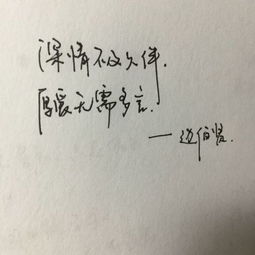 深情不及久伴.
厚爱无需多言.
——边伯贤.